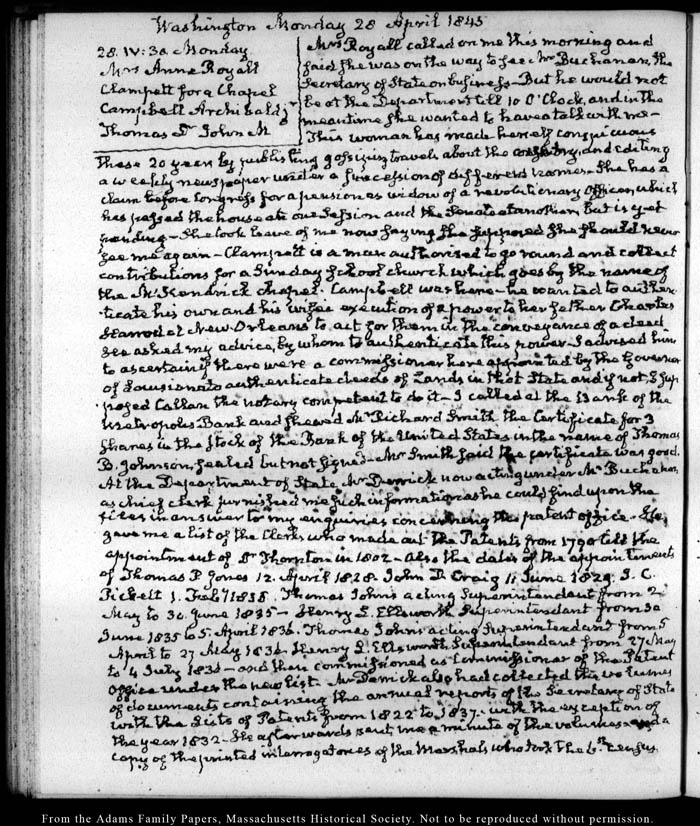 Washington Monday 28 April 1845
28. IV:30 Monday
Mrs Anne Royall
Clampett for a Chapel
Campbell Archibald
Thomas Dr John M
Mrs Royall called on me this morning and
said she was on the way to see Mr Buchanan, the
Secretary of State on business. But he would not
be at the Department till 10 O'Clock, and in the
meantime she wanted to have a talk with me—
This woman has made herself conspicuous
these 20 years by publishing gossiping travels about the country, and editing
a weekly newspaper under a succession of different names. She has a
claim before Congress for a pension as widow of a revolutionary Officer, which
has passed the house at one Session and the Senate at another, but is yet
pending— She took leave of me now saying she supposed she should never
see me again— Clampett is a man authorised to go round and collect
contributions for a Sunday school church which goes by the name of
the McKendrick chapel. Campbell was here— he wanted to authen-
ticate his own and his wife's execution of a power to her father Charles
at New Orleans to act for them in the conveyance of a deed
He asked my advice, by whom to authenticate this power. I advised him
to ascertain if there were a commissioner here appointed by the Governor
of Louisiana to authenticate deeds of Lands in that State and if not, I sup-
posed Callan the notary competent to do it— I called at the Bank of the
Metropolis Bank and shewed Mr Richard Smith the Certificate for 3
Shares in the Stock of the Bank of the United States in the name of Thomas
B. Johnson, sealed but not signed. Mr Smith said the certificate was good.
At the Department of State Mr Derrick now acting under Mr Buchanan
as chief clerk furnished me such information as he could find upon the
files in answer to my enquiries concerning the patent office. He
gave me a list of the Clerks who made out the Patents from 1790 till the
appointment of Dr Thornton in 1802— Also the dates of the appointments
of Thomas P. Jones 12. April 1828. John D Craig 11 June 1829. J. C.
Pickett 1. Feby 1835. Thomas Johns acting Superintendant from 2
May to 30 June 1835— Henry L. Ellsworth Superintendant from 30
June 1835 to 5. April 1836. Thomas Johns acting Superintendant from 5
April to 27 May 1836 Henry L. Ellsworth Superintendant from 27 May
to 4 July 1836— and then commissioned as Commissioner of the Patent
Office under the new list. Mr Derrick also had collected the volumes
of documents containing the annual reports of the Secretary of State
with the Lists of Patents from 1822 to 1837. with the exception of
the year 1832— He afterwards sent me a minute of the volumes and a
copy of the printed interrogatories of the Marshals who took the 6th census
From the Adams Family Papers, Massachusetts Historical Society. Not to be reproduced without permission.